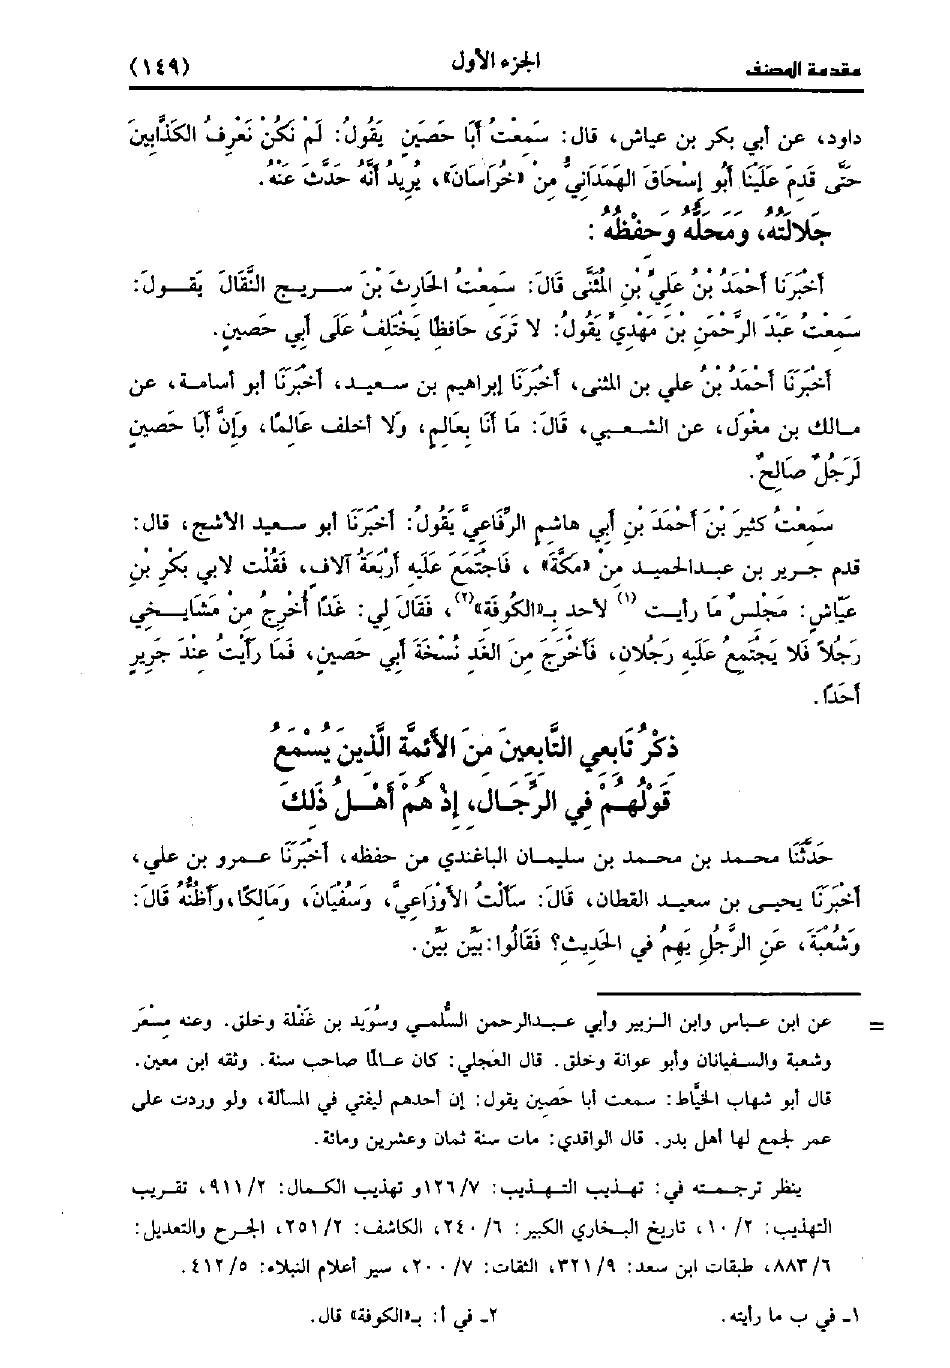 مقدمة المصنف الجزء الأول (١٤٩)
داود، عن أبي بكر بن عياش، قال: سَمَعْتُ أَبَا حَصَينٍ يَقُولُ: لَمْ نَكُنْ نَعْرِفُ الكَذَّابِينَ
حَتَّى قَدِمَ عَلَيْنَا أَبُو إِسْحَاقَ الهَمَدَانِيُّ مِنْ «خُرَاسَانَ»، يُرِيدُ أَنَّهُ حَدَّثَ عَنْهُ.
جَلَالَتُهُ، وَمَحَلُّهُ وَحِفْظُهُ :
أَخْبَرَنَا أَحْمَدُ بْنُ عَلِيِّ بْنِ المُثَنَّى قَالَ: سَمِعْتُ الحَارِثَ بْنَ سُرَيجٍ النَّقَّالَ يَقُولَ:
سَمِعْتُ عَبْدَ الرَّحْمَنِ بْنَ مَهْدِيٍّ يَقُولُ: لا تَرَى حَافِظًا يَخْتَلِفُ عَلَى أَبِي حَصِينٍ.
أَخْبَرَنَا أَحْمَدُ بْنُ علي بن المثنى، أَخْبَرَنَا إبراهيم بن سعيد، أَخْبَرَنَا أبو أسامة، عن
مالك بن مغول، عن الشعبي، قَالَ: مَا أَنَا بِعَالِمٍ، وَلَا أخلف عَالِمًا، وَإِنَّ أَبَا حَصِينٍ
لَرَجُلٌ صَالِحٌ.
سَمِعْتُ كَثِيرَ بْنَ أَحْمَدَ بْنِ أَبِي هاشم الرِّفَاعِيَّ يَقُولُ: أَخْبَرَنَا أبو سعيد الأشج، قال:
قدم جرير بن عبدالحميد مِنْ «مَكَّةَ» ، فَاجْتَمَعَ عَلَيهِ أَرْبَعَةُ آلافٍ، فَقُلْت لأبي بَكْرِ بْنِ
عَيَّاشٍ: مَجْلِسٌ مَا رأيت (١) لأحد بـ«الكُوفَةِ»(٢)، فَقَالَ لِي: غَدًا أُخْرِجُ مِنْ مَشَايِخِي
رَجُلاً فَلا يَجْتَمِعُ عَلَيهِ رَجُلانِ، فَأَخْرَجَ مِنَ الغَدِ نُسْخَةَ أَبِي حَصِينٍ، فَمَا رَأَيْتُ عِنْدَ جَرِيرٍ
أَحَدًا.
ذِكْرُ تَابِعِي التَّابِعِينَ مِنَ الأَئِمَّةِ الَّذِينَ يُسْمَعُ
قَوْلُهُمْ فِي الرِّجَالِ، إِذْ هُمْ أَهْلُ ذَلِكَ
حَدَّثَنَا محمد بن محمد بن سليمان الباغندي من حفظه، أَخْبَرَنَا عمرو بن علي،
أَخْبَرَنَا يحيى بن سعيد القطان، قَالَ: سَأَلْتُ الأَوْزَاعِيَّ، وَسُفْيَانَ، وَمَالِكًا،وَأَظُنُّهُ قَالَ:
وَشُعْبَةَ، عَنِ الرَّجُلِ يَهِمُ في الحَدِيثِ؟ فَقَالُوا:بَيِّن بَيِّن.
= عن ابن عباس وابن الزبير وأبي عبدالرحمن السُّلمي وسُوَيد بن غَفَلة وخلق. وعنه مِسْعَر
وشعبة والسفيانان وأبو عوانة وخلق. قال العَجلي: كان عالمًا صاحب سنة. وثقه ابن معين.
قال أبو شهاب الخيَّاط: سمعت أبا حَصِين يقول: إن أحدهم ليفتي في المسألة، ولو وردت على
عمر لجمع لها أهل بدر. قال الواقدي: مات سنة ثمان وعشرين ومائة.
ينظر ترجمته في: تهذيب التهذيب: ١٢٦/٧و تهذيب الكمال: ٩١١/٢، تقريب
التهذيب: ١٠/٢، تاريخ البخاري الكبير: ٢٤٠/٦، الكاشف: ٢٥١/٢، الجرح والتعديل:
٨٨٣/٦، طبقات ابن سعد: ٣٢١/٩، الثقات: ٢٠٠/٧، سير أعلام النبلاء: ٤١٢/٥.
١ـ في ب ما رأيته. ٢ـ في أ: بـ«الكوفة» قال.